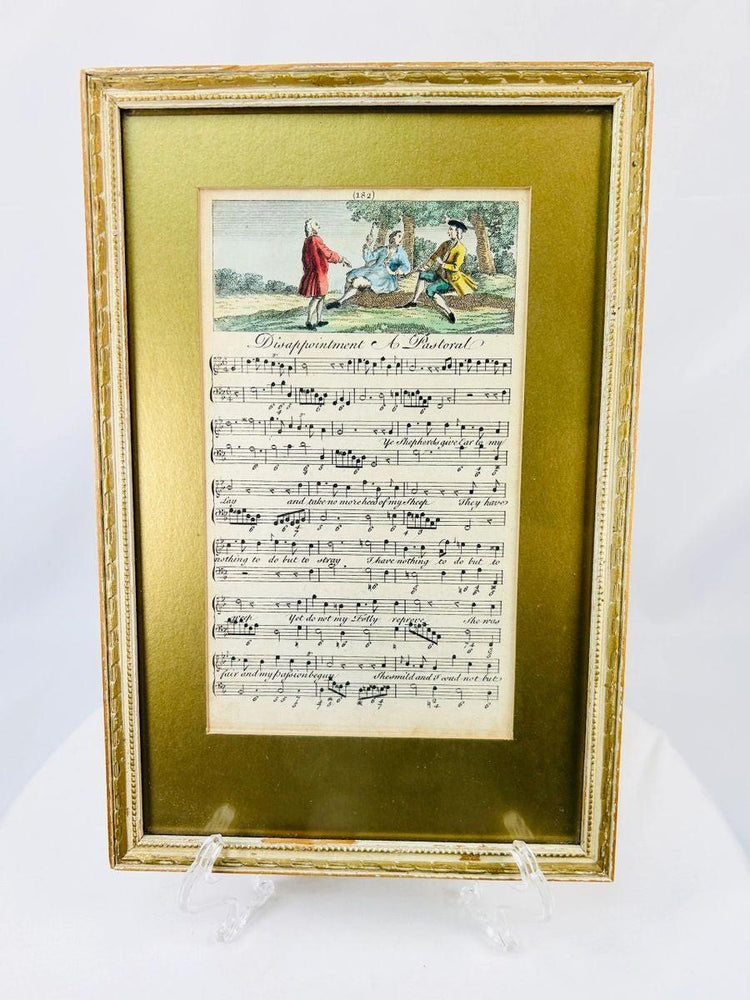 (182)
Disappointment A Pastoral
Ye Shepherds give Ear to my
Lay and take no more heed of my sheep They have
nothing to do but to stray I have nothing to do but to
weep. Yet do not my Folly reprove She was
fair and my Passion begun She smil'd and I coud not but